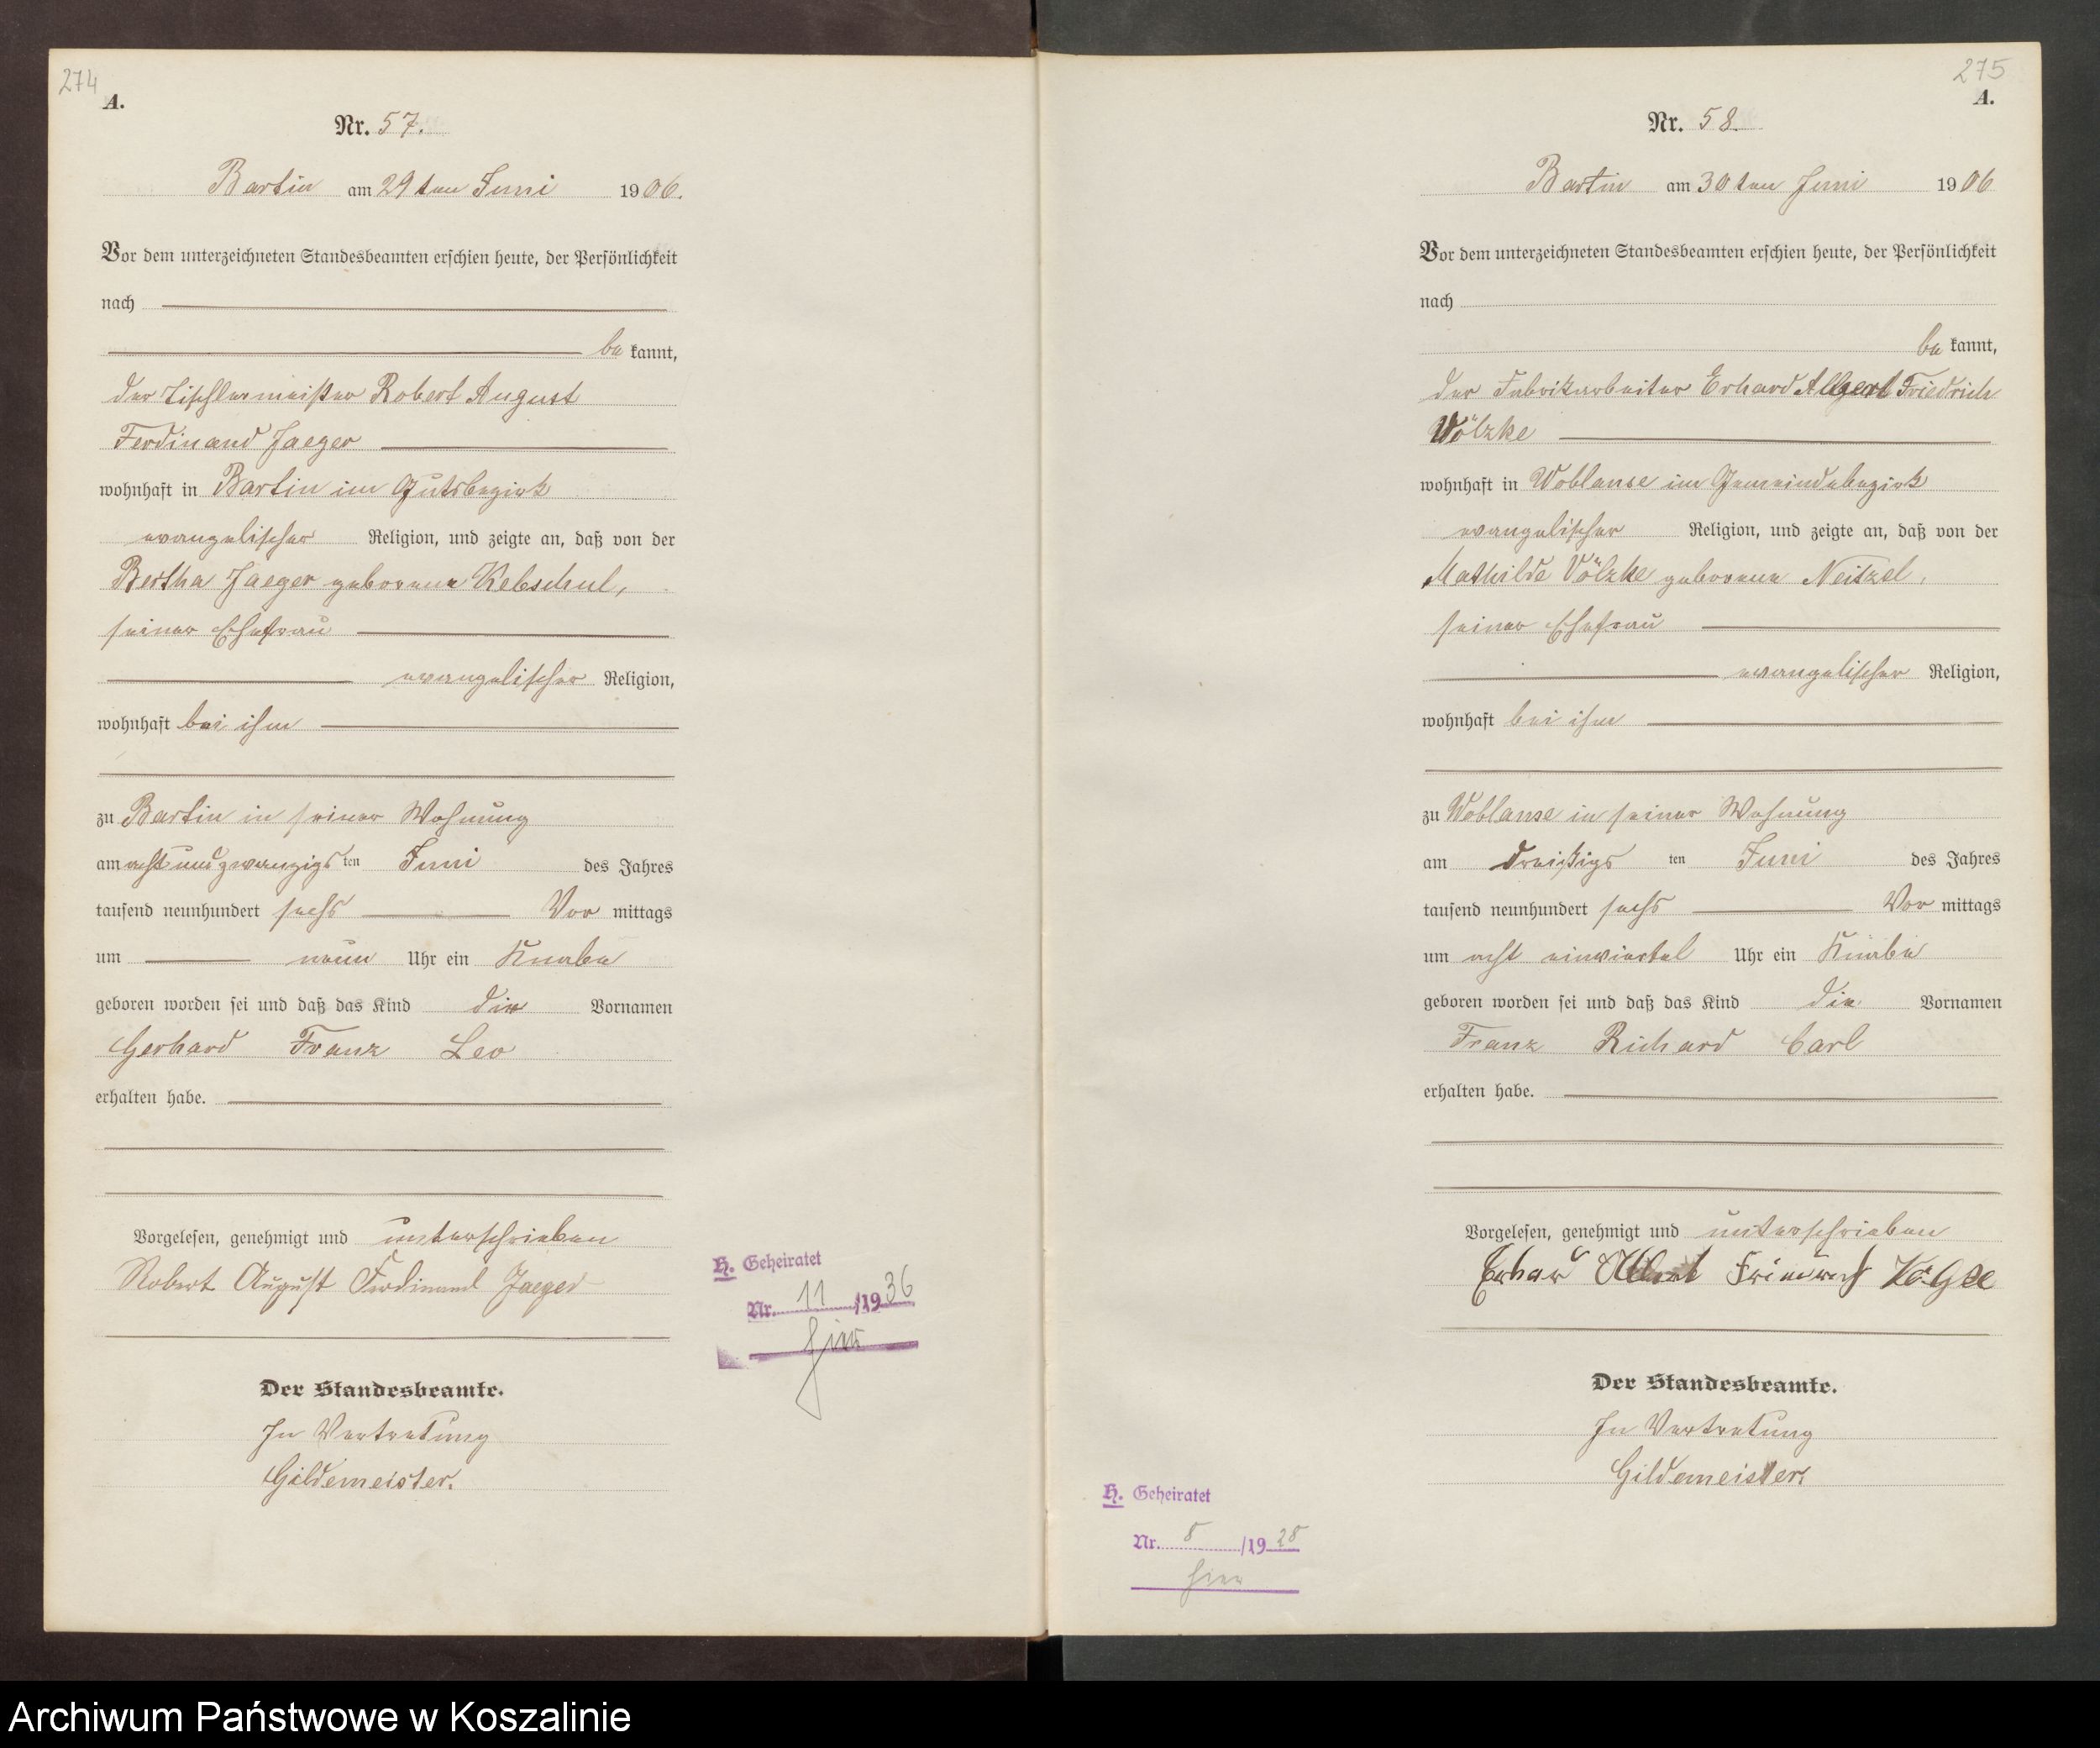 274
A.
Nr. 57.
Bartin am 29ten Juni 1906.
Vor dem unterzeichneten Standesbeamten erschien heute, der Persönlichkeit
nach
be kannt,
der Tischlermeister Robert August
Ferdinand Jaeger
wohnhaft in Bartin im Gutsbezirk
evangelischer Religion, und zeigte an, daß von der
Bertha Jaeger geborene Kebschul,
seiner Ehefrau
evangelischer Religion,
wohnhaft bei ihm
zu Bartin in seiner Wohnung
am acht und zwanzigs ten Juni des Jahres
tausend neunhundert sechs Vor mittags
um neun Uhr ein Knabe
geboren worden sei und daß das Kind die Vornamen
Gerhard Franz Leo
erhalten habe.
Vorgelesen, genehmigt und unterschrieben
Robert August Ferdinand Jaeger
Der Standesbeamte.
In Vertretung
Gildemeister.
H. Geheiratet
Nr. 11 /1936
hier
275
A.
Nr. 58.
Bartin am 30ten Juni 1906
Vor dem unterzeichneten Standesbeamten erschien heute, der Persönlichkeit
nach
be kannt,
der Fabrikarbeiter Erhard Albert Friedrich
Wölzke
wohnhaft in Woblanse im Gemeindebezirk
evangelischer Religion, und zeigte an, daß von der
Mathilde Völzke geborene Neitzel,
seiner Ehefrau
evangelischer Religion,
wohnhaft bei ihm
zu Woblanse in seiner Wohnung
am dreißigs ten Juni des Jahres
tausend neunhundert sechs Vor mittags
um acht einviertel Uhr ein Knabe
geboren worden sei und daß das Kind die Vornamen
Franz Richard Carl
erhalten habe.
Vorgelesen, genehmigt und unterschrieben
Albert
Der Standesbeamte.
In Vertretung
Gildemeister.
H. Geheiratet
Nr. 8 /1928
hier
Archiwum Państwowe w Koszalinie